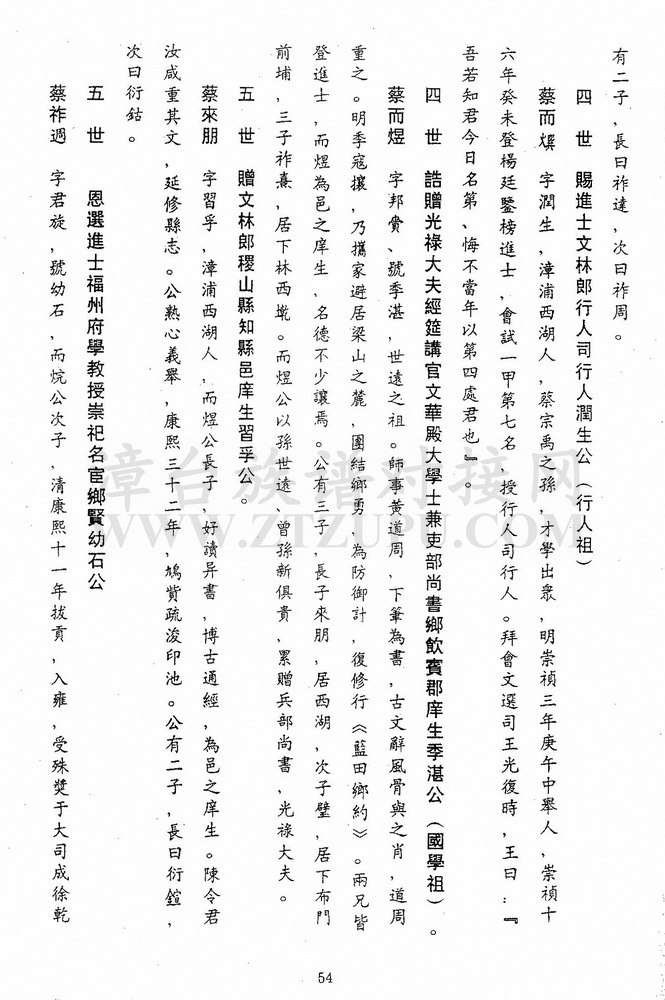 有二子，長曰祚達，次曰祚周。
四世　賜進士文林郎行人司行人潤生公（行人祖）
蔡而熉　字潤生，漳浦西湖人，蔡宗禹之孫，才學出眾，明崇禎三年庚午中舉人，崇禎十
六年癸未登楊廷鑒榜進士，會試一甲第七名，授行人司行人。拜會文選司王光復時，王曰：『
吾若知君今日名第、悔不當年以第四處君也』。
四　世　誥贈光祿大夫經筵講官文華殿大學士兼吏部尚書鄉飲賓郡庠生季湛公（國學祖）。
蔡而煜　字邦貴、號季湛，世遠之祖。師事黃道周，下筆為書，古文辭風骨與之肖，道周
重之。明季寇攘，乃攜家避居梁山之麓，團結鄉勇，為防御計，復修行《藍田鄉約》。兩兄皆
登進士，而煜為邑之庠生，名德不少讓焉。公有三子，長子來朋，居西湖，次子璧，居下布門
前埔，三子祚熹，居下林西墘。而煜公以孫世遠、曾孫新俱貴，累贈兵部尚書，光祿大夫。
五　世　贈文林郎稷山縣知縣邑庠生習孚公。
蔡來朋　字習孚，漳浦西湖人，而煜公長子，好讀异書，博古通經，為邑之庠生。陳令君
汝咸重其文，延修縣志。公熱心義舉，康熙三十二年，鳩貲疏浚印池。公有二子，長曰衍鍹，
次曰衍鈷。
五　世　恩選進士福州府學教授崇祀名宦鄉賢幼石公
蔡祚週　字君旋，號幼石，而烷公次子，清康熙十一年拔貢，入雍，受殊獎于大司成徐乾
54
漳台族譜对接网
WWW.ZTZUPU.COM